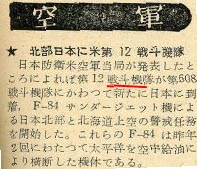 空軍
★ 北部日本に米第12戦斗機隊
日本防衛米空軍当局が発表したと
ころによれば第12戦斗機隊が第508
戦斗機隊にかわつて新たに日本に到
着，F-84 サンダージェット機によ
る日本北部と北海道上空の警戒任務
を開始した。これらのF-84は昨年
2回にわたつて太平洋を空中給油に
より横断した機体である。